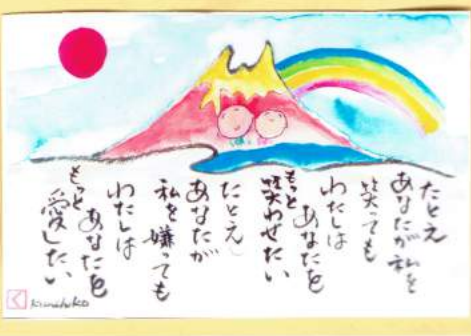 たとえ
あなたが私を
笑っても
わたしは
あなたを
もっと
笑わせたい
たとえ
あなたが
私を嫌っても
わたしは
あなたを
もっと
愛したい